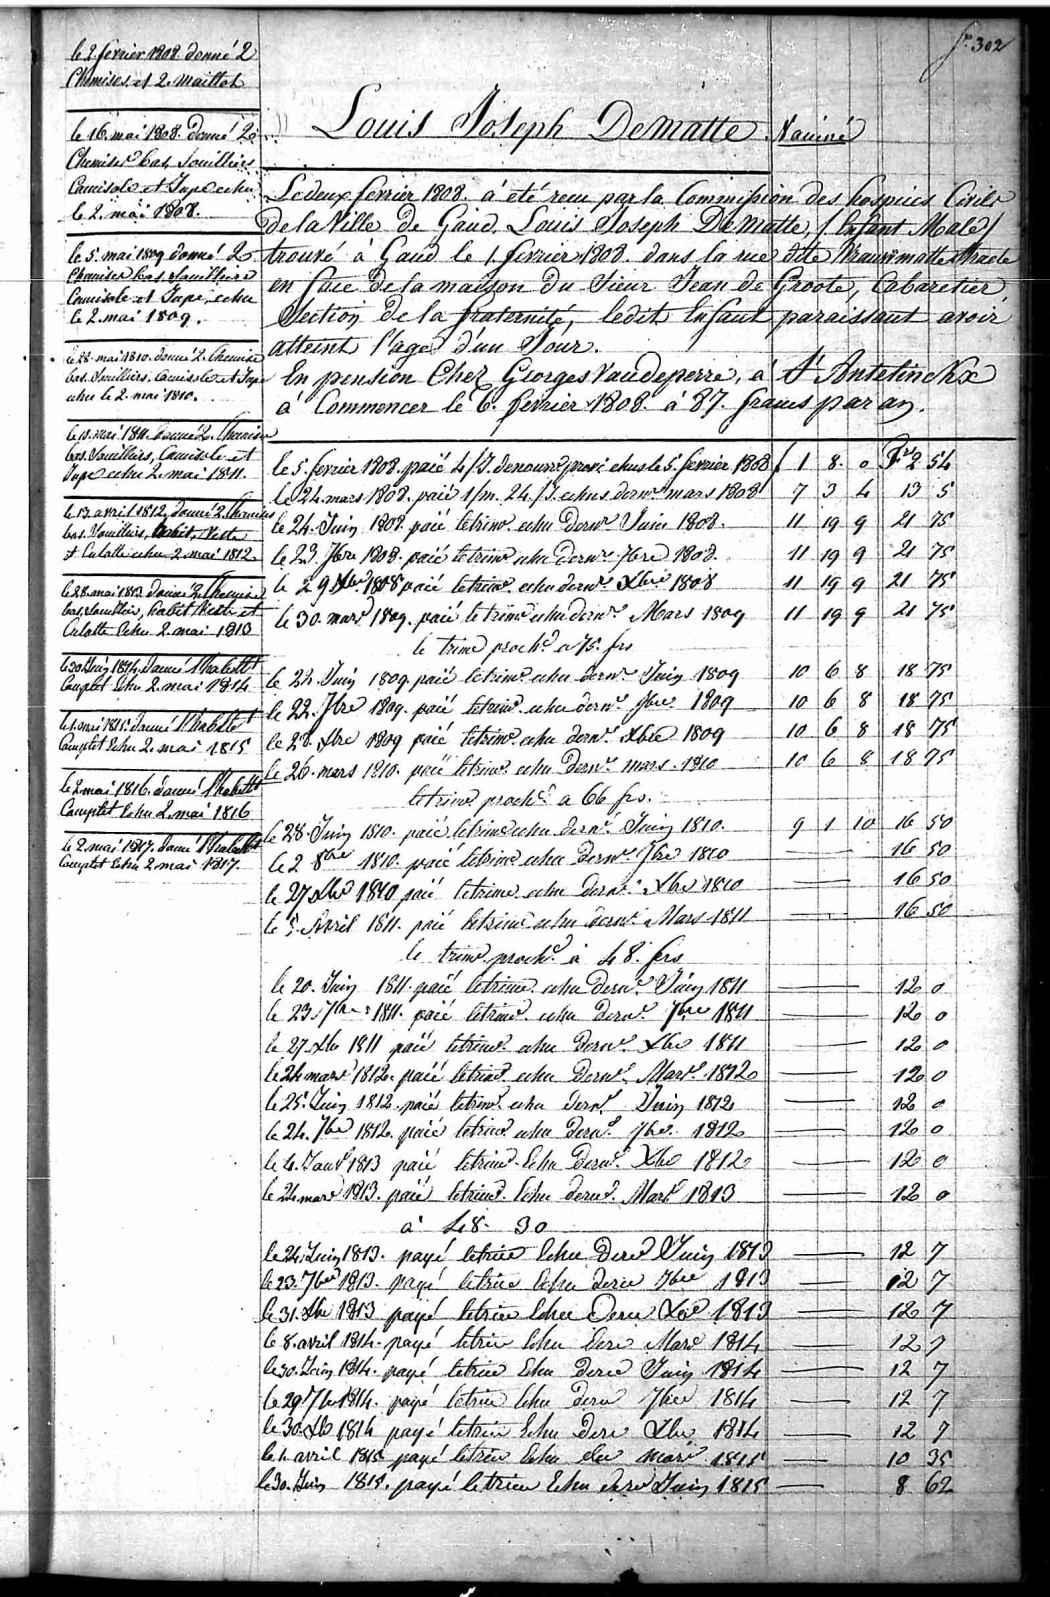 f° 302
le 2 fevrier 1808. donné 2
Chemises et 2. maillot
le 16. mai 1808. donné 2.
Chemises bas, Souilliers
Camisole et Jupe echu
le 2. mai 1808.
le 5. mai 1809 donné 2.
Chemises bas Souilliers
Camisole et Jupe, echu
le 2. mai 1809.
le 28. mai 1810. donné 2. Chemise
bas. Souilliers. Camisole et Jupe
echu le 2. mai 1810.
le 10. mai 1811. donné 2. Chemises
bas. Souilliers, Camisole et
Jupe echu 2. mai 1811.
le 13 avril 1812. donné 2. Chemises
bas. Souilliers, habit, Veste
et Culotte echu 2. mai 1812.
le 28. mai 1813. donné 2. Chemises
bas, Souilliers, habit Veste et
Culotte Echu 2. mai 1813
le 30. Juin 1814. donné 1 habillt
Complet Echu 2. mai 1814
le 1. mai 1815. donné 1 habillt
Complet Echu 2. mai 1815
le 2 mai 1816. donné 1 habillt
Complet Echu 2. mai 1816
le 2. mai 1817. donné 1 habillt
Complet Echu 2 mai 1817.
Louis Joseph Dematte
Le deux fevrier 1808. à été recu par la Commission des hospices Civils
de la Ville de Gand, Louis Joseph Dematte, / Enfant Male /
trouvé à Gand le 1. fevrier 1808. dans la rue dite
en face de la maison du Sieur Jean de Groote, Cabaretier
Section de la fraternité, ledit Enfant paraissant avoir
atteint l'age d'un Jour.
En pension Chez Georges Vandeperre, à St Antelinckx
à Commencer le 6. fevrier 1808. à 87. francs par an.
le 5. fevrier 1808. paié 4/J. de nourre provre echus le 5. fevrier 1808 1 8. 0 Fr 2 54
le 24. mars 1808. paié 1/m. 24./J. echus dernr mars 1808 7 3 4 13 5
le 24. Juin 1808. paié le trimre echu dernr Juin 1808. 11 19 9 21 75
le 23. 7bre 1808. paié le trimre echu dernr 7bre 1808. 11 19 9 21 75
le 29 Xbre 1808 paié le trimre echu dernr Xbre 1808 11 19 9 21 75
le 30. mars 1809. paié le trimre echu dernr Mars 1809 11 19 9 21 75
le trimre prochn a 75. frs
le 24. Juin 1809 paié le trimre echu dernr Juin 1809 10 6 8 18 75
le 22. 7bre 1809. paié le trimre echu dernr 7bre 1809 10 6 8 18 75
le 28. Xbre 1809 paié le trimre echu dernr Xbre 1809 10 6 8 18 75
le 26. mars 1810. paié le trimre echu dernr mars. 1810 10 6 8 18 75
le trimre prochn a 66 frs.
le 28. Juin 1810. paié le trimre echu dernr Juin 1810. 9 1 10 16 50
le 2 8bre 1810. paié le trimre echu dernr 7bre 1810 16 50
le 27 Xbre 1810 paié le trimre echu dernr Xbre 1810 16 50
le 5. Avril 1811. paié le trimre echu dernr Mars 1811 16 50
le trimre prochn à 48. frs
le 20. Juin 1811. paié le trimre echu dernr Juin 1811 12 0
le 23. 7bre 1811. paié le trimre echu dernr 7bre 1811 12 0
le 27. Xbre 1811 paié le trimre echu dernr Xbre 1811 12 0
le 24 mars 1812. paié le trimre echu dernr Mars 1812 12 0
le 25. Juin 1812. paié le trimre echu dernr Juin 1812 12 0
le 24. 7bre 1812. paié le trimre echu dernr 7bre 1812 12 0
le 4. Janvr 1813 paié le trimre Echu dernr Xbre 1812 12 0
le 24 mars 1813. paié le trimre Echu dernr Mars 1813 12 0
à 48. 30
le 24. Juin 1813. payé le trim Echu der Juin 1813 12 7
le 23. 7bre 1813. payé le trim Echu der 7bre 1813 12 7
le 31. Xbre 1813 payé le trim Echu der Xbre 1813 12 7
le 8. avril 1814. payé le trim Echu der Mars 1814 12 7
le 30. Juin 1814. payé le trim Echu der Juin 1814 12 7
le 29 7bre 1814. payé le trim Echu der 7bre 1814 12 7
le 30. Xbre 1814 payé le trim Echu der Xbre 1814 12 7
le 1. avril 1815 payé le trim Echu der mars 1815 10 35
le 30. Juin 1815. payé le trim Echu der Juin 1815 8 62